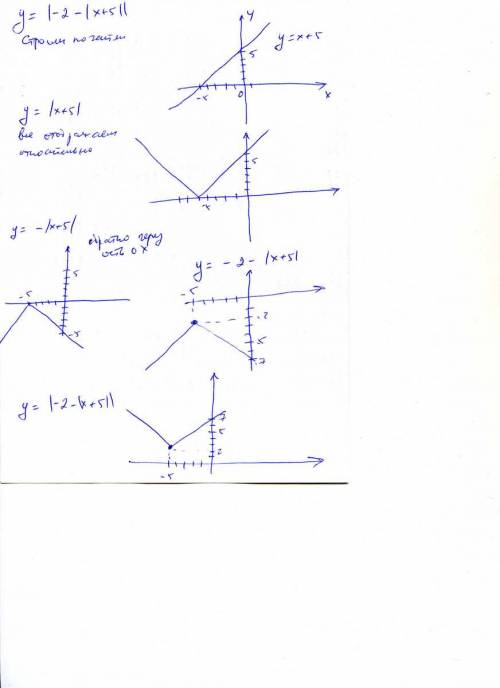 y = |-2-|x+5||
Строим по частям
y
5
y=x+5
-5
0
x
y = |x+5|
все отображаем
относительно
5
y = -|x+5|
обратно через
ось ox
5
-5
-5
y = -2-|x+5|
-5
-2
-5
-7
y = |-2-|x+5||
7
5
2
-5